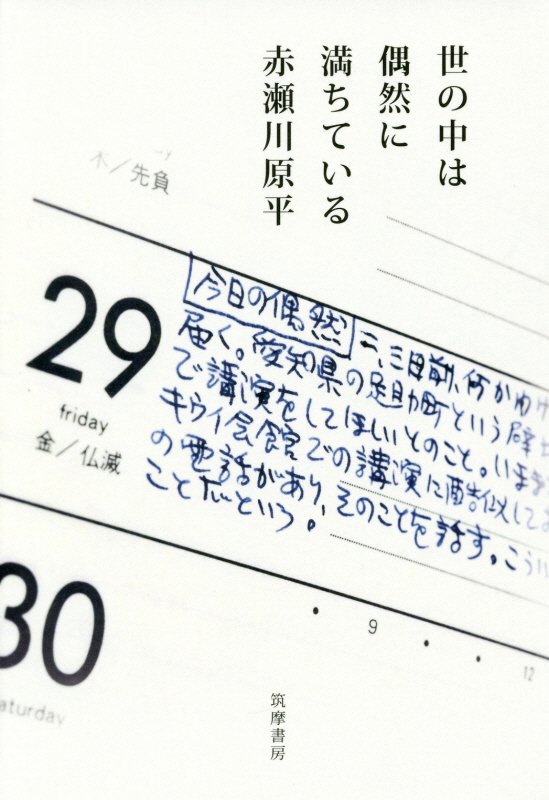 世の中は
偶然に
満ちている
赤瀬川原平
先負
29
friday
金／仏滅
今日の偶然 二、三日前、何かゆけ
届く。愛知県の足助町という僻地
で講演をしてほしいとのこと。いまま
キウイ会館での講演に酷似してお
の電話があり、そのことを話す。こうい
ことだという。
30
aturday
9
12
筑摩書房